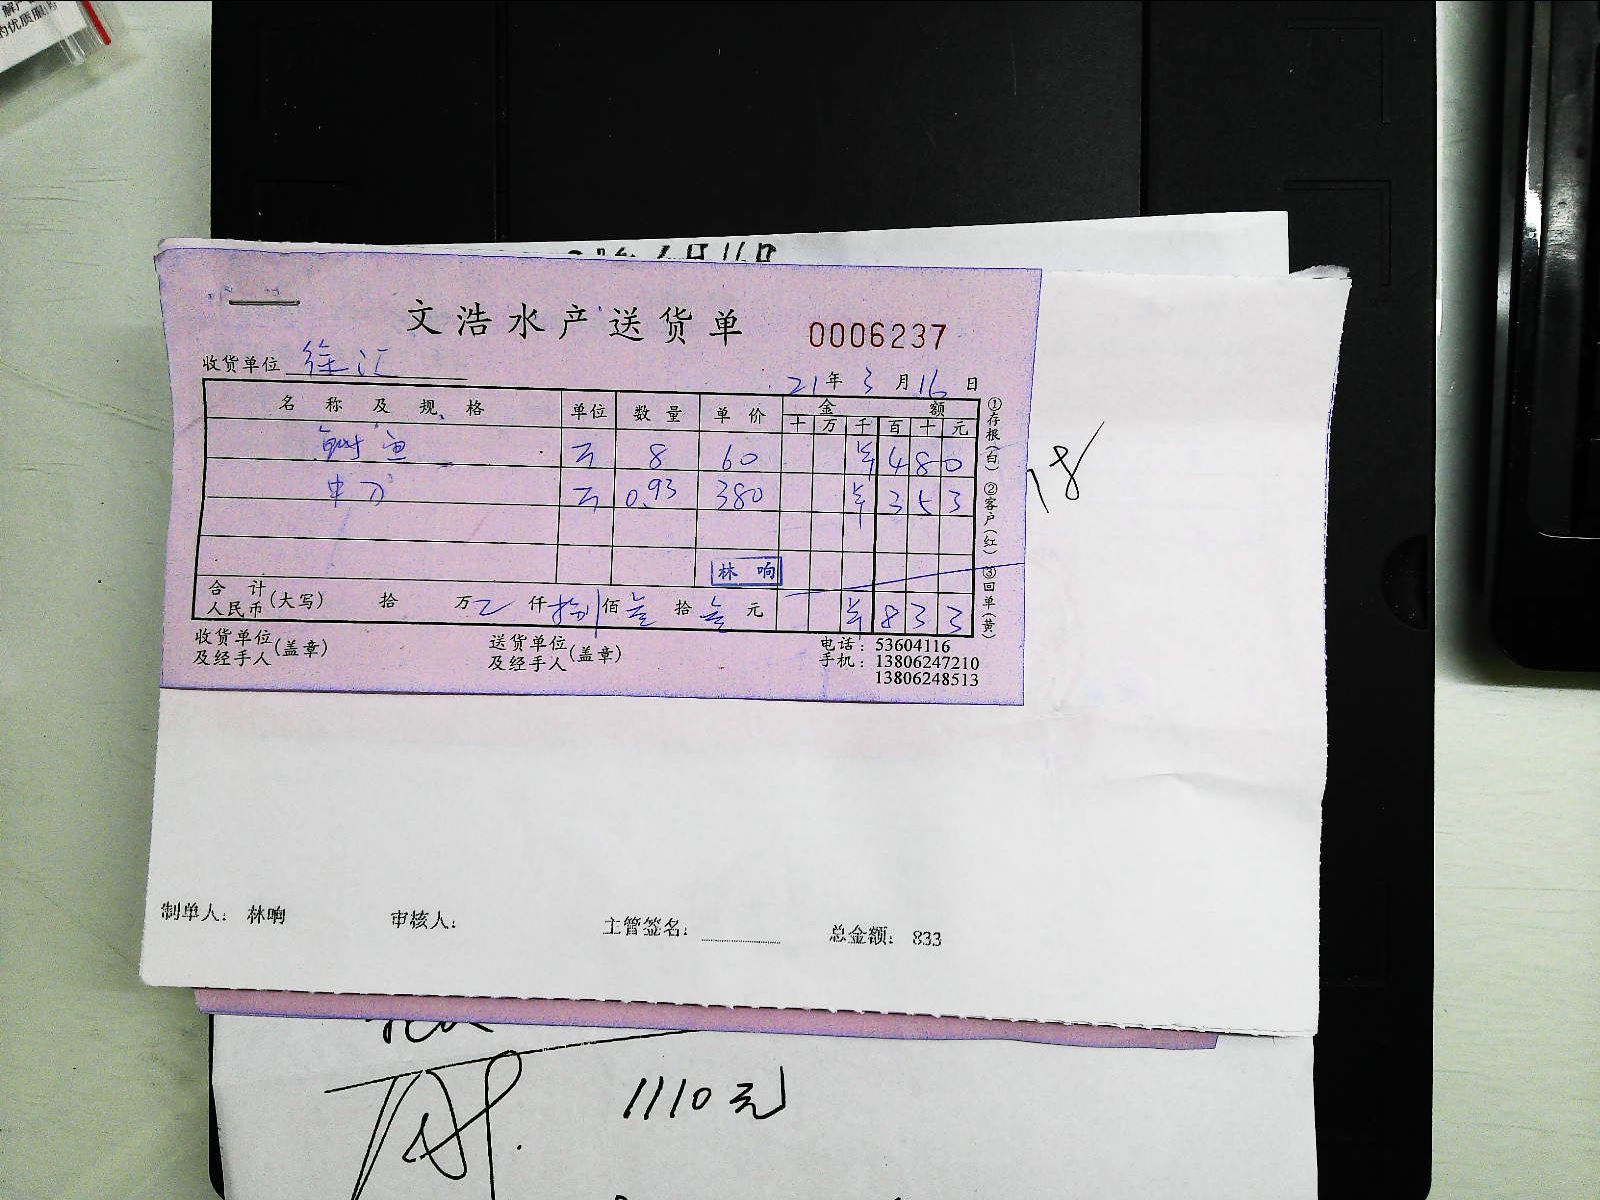 的优质服
文浩水产送货单 0006237
收货单位 徐汇
21年3月16日
名称及规格 单位 数量 单价 金额
十 万 千 百 十 元
鲥鱼 斤 8 60 ¥ 4 8 0
中刀 斤 0.93 380 ¥ 3 5 3
林响
合计
人民币(大写) 拾 万 仟 捌 佰 叁 拾 叁 元 ¥ 8 3 3
收货单位
及经手人(盖章)
送货单位
及经手人(盖章)
电话:53604116
手机:13806247210
13806248513
①存根(白) ②客户(红) ③回单(黄)
18
制单人: 林响 审核人: 主管签名: 总金额: 833
1110元